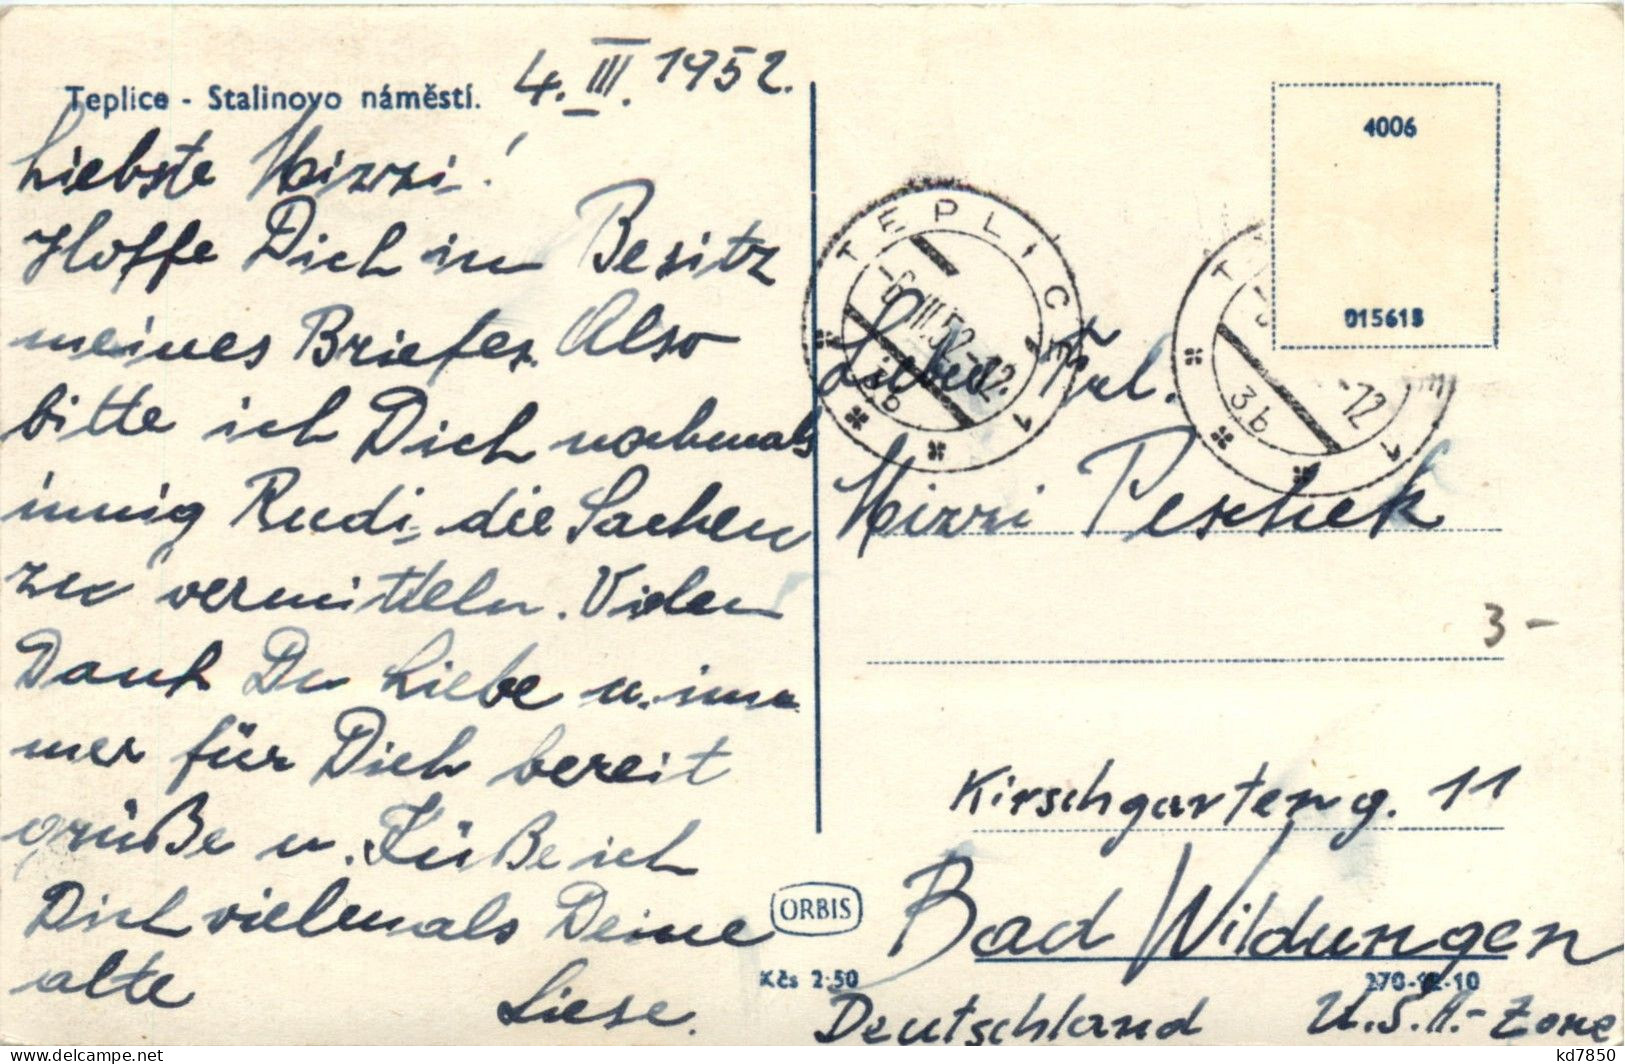 Teplice - Stalinovo náměstí.
4. III. 1952.
Liebste Mizzi!
Hoffe Dich im Besitz
meines Briefes. Also
bitte ich Dich nochmals
innig Rudi die Sachen
zu vermitteln. Vielen
Dank Du Liebe u. im
mer für Dich bereit
grüße u. Küße ich
Dich vielemals Deine
alte
Liese.
TEPLICE 1
-6.III.52-12
3b
T
-12
3b
1
4006
015618
Frl.
Mizzi Peschek
3-
Kirschgarteng. 11
Bad Wildungen
Deutschland U.S.A.-Zone
ORBIS
Kčs 2·50
270-12-10
kd7850